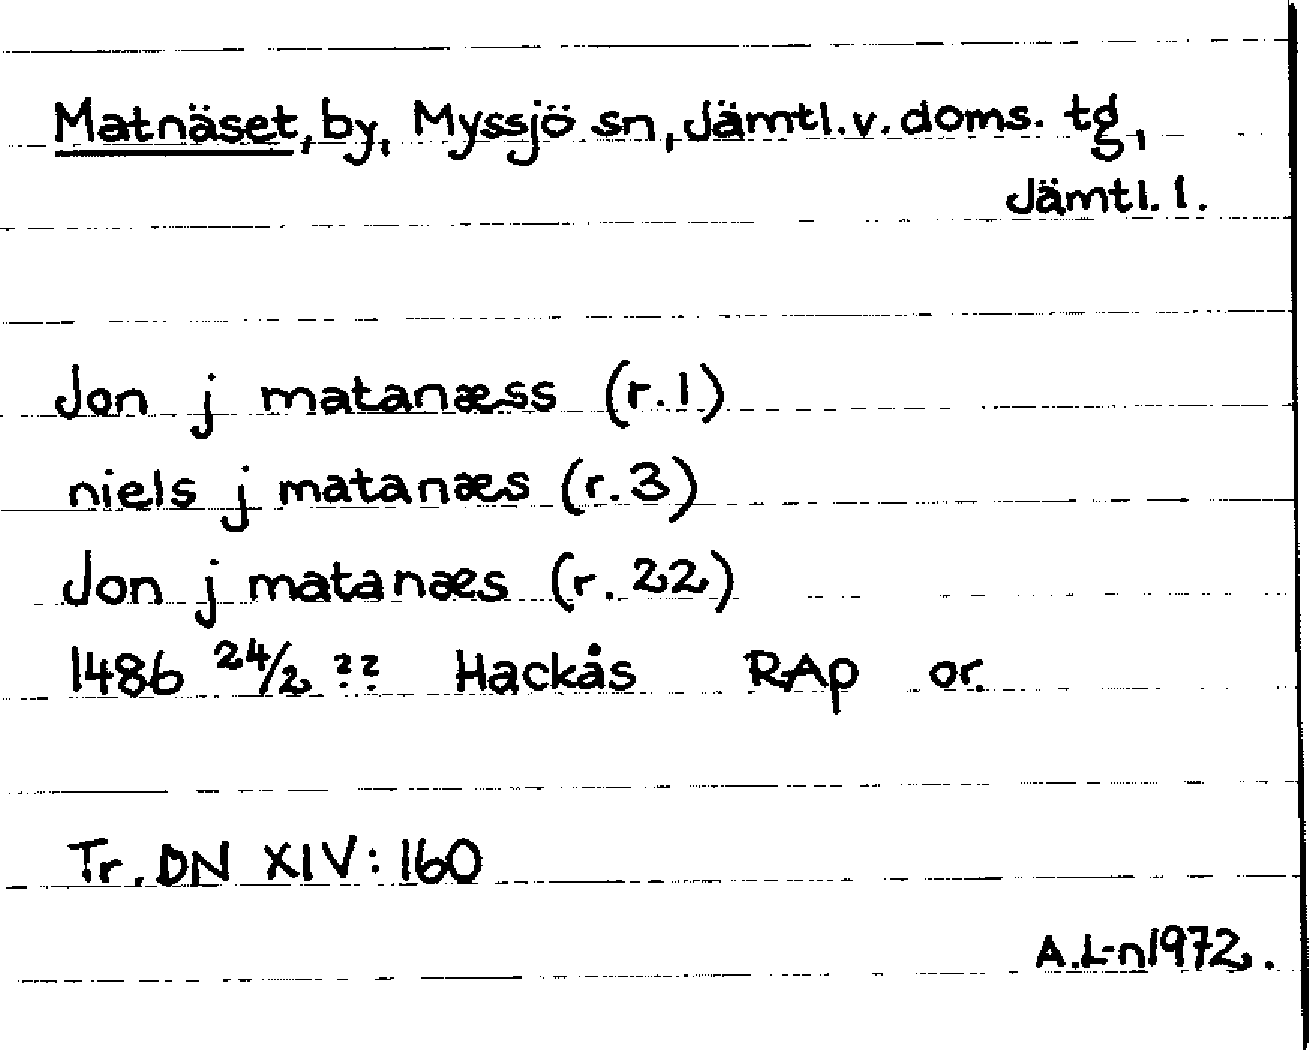 Matnäset, by, Myssjö sn, Jämtl. v. doms. tg,
Jämtl. l.
Jon j matanæss (r. 1)
niels j matanæs (r. 3)
Jon j matanæs (r. 22)
1486 24/2 ?? Hackås RAp or.
Tr. DN XIV: 160
A.L-n 1972.